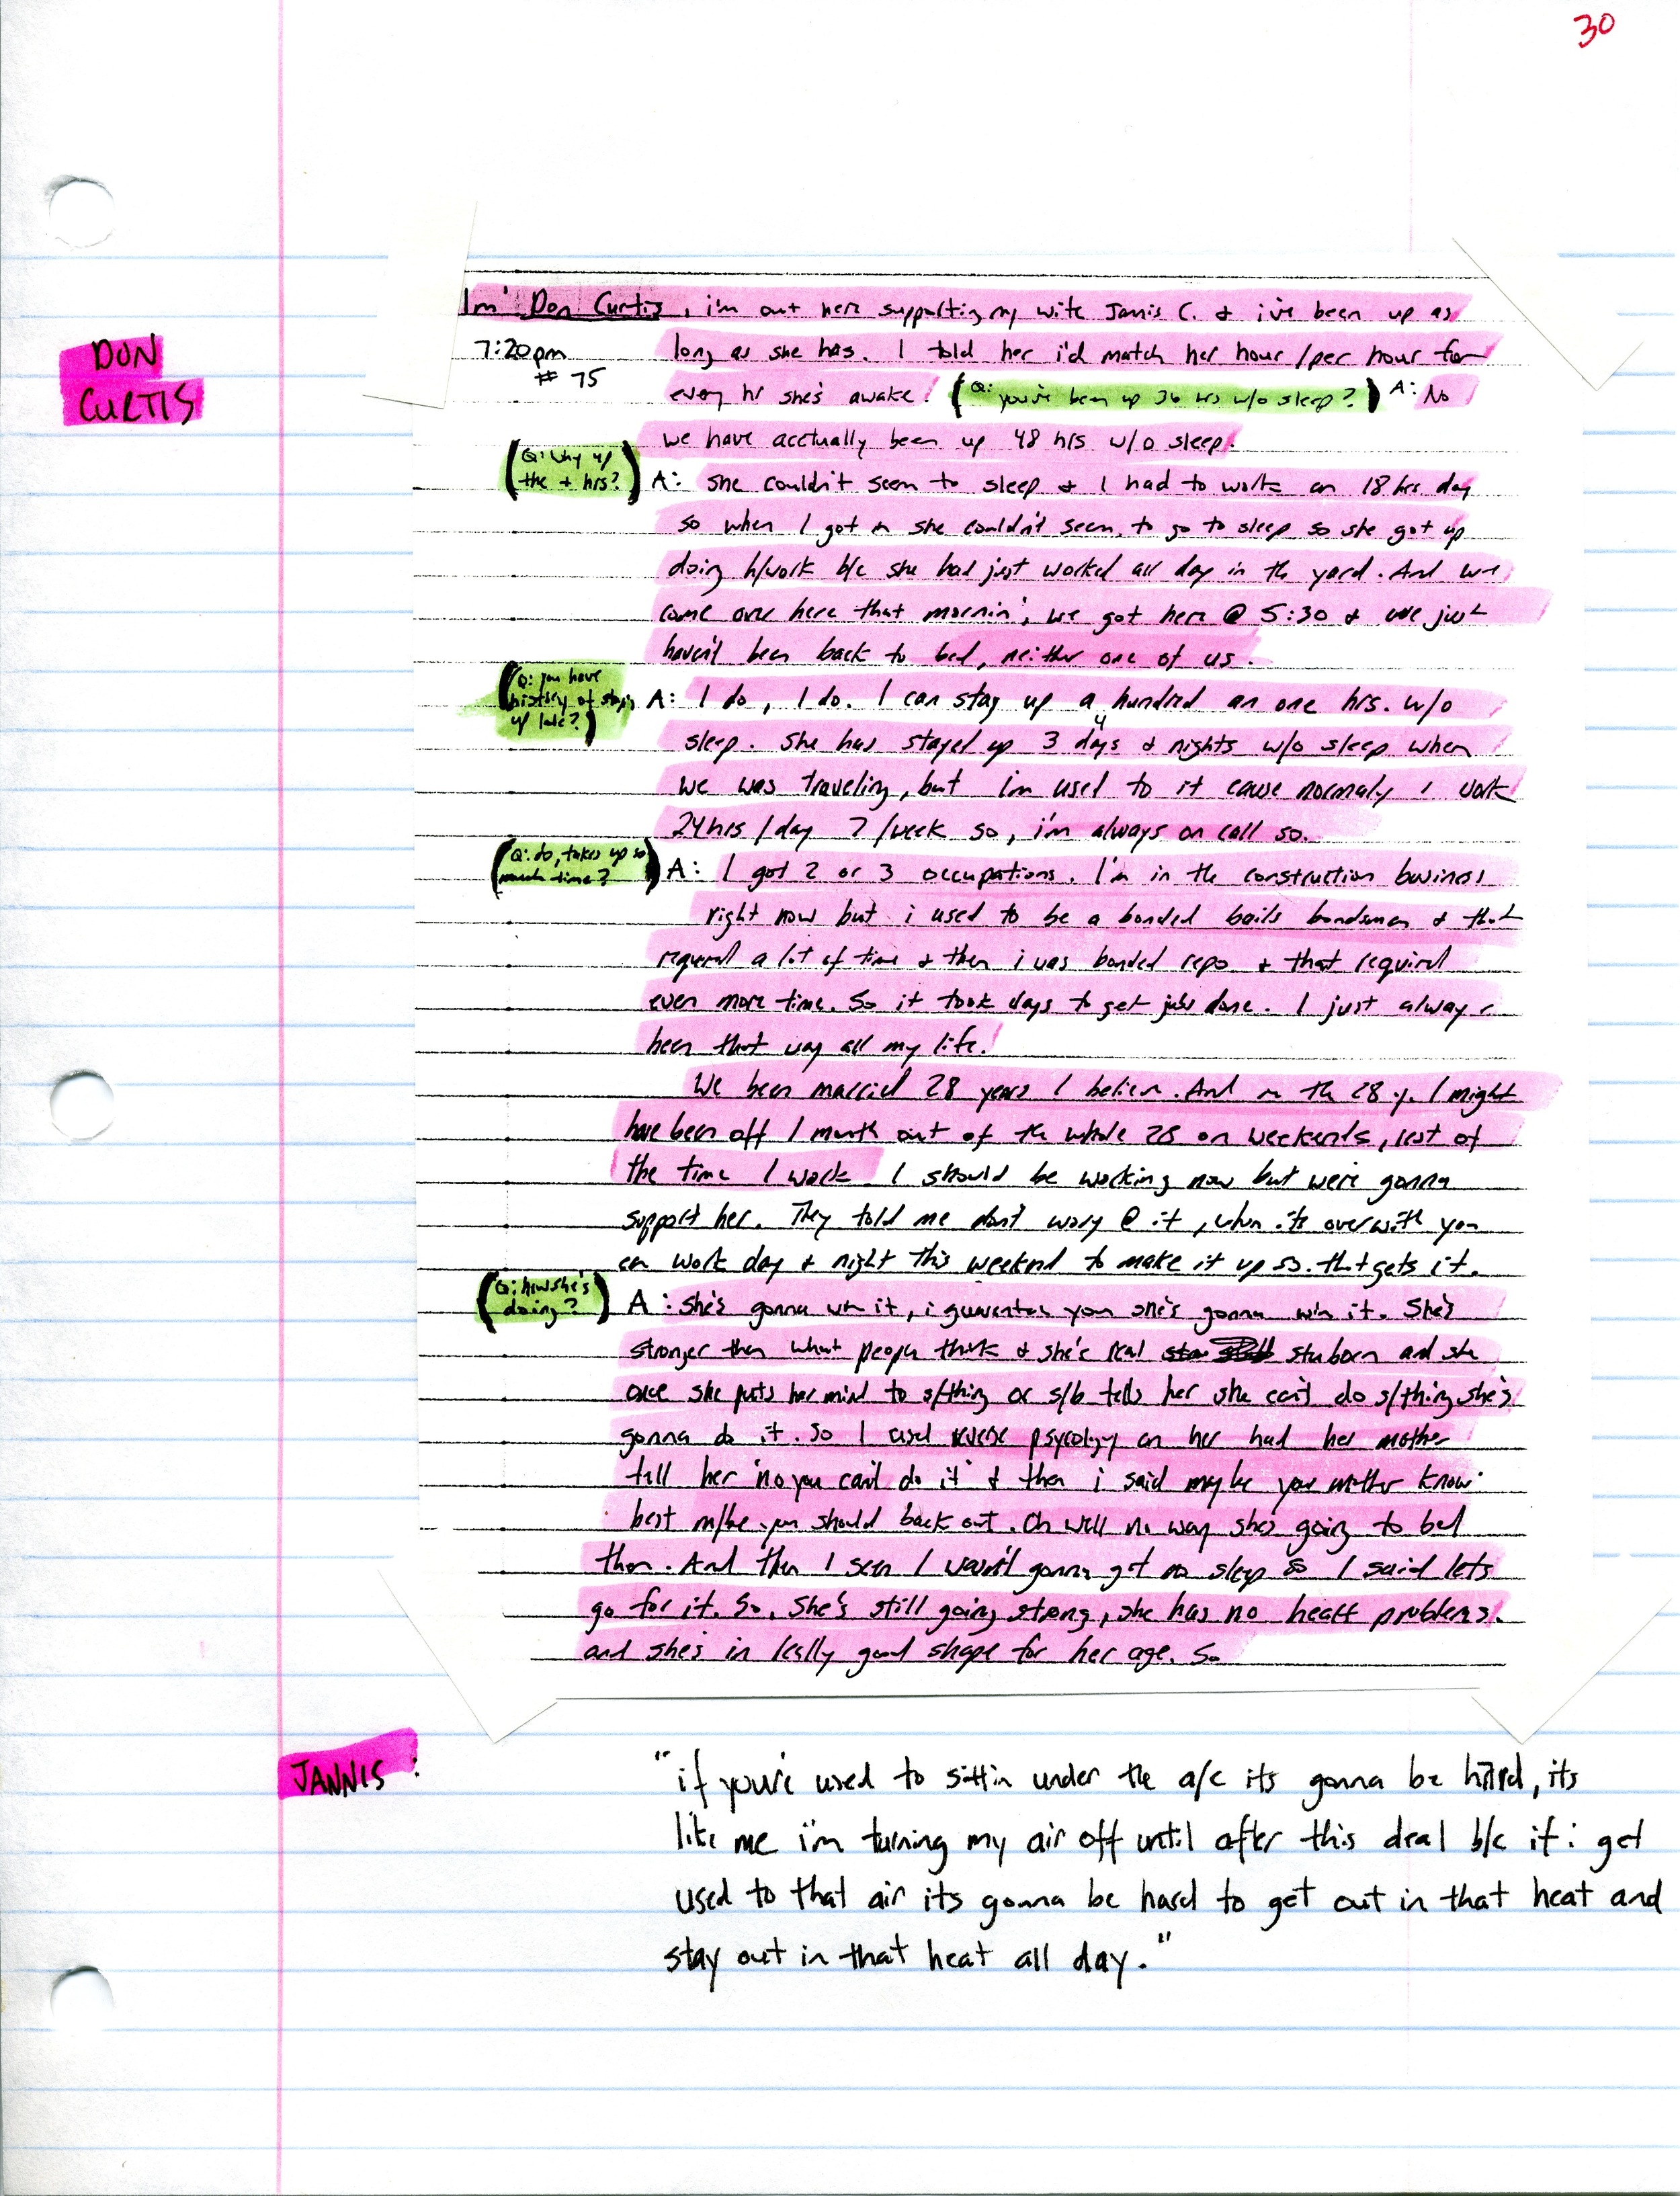 30
DON
CURTIS
Im' Don Curtis, i'm out here supporting my wife Janis C. & i've been up as
7:20pm
# 75
long as she has. I told her i'd match her hour/per hour for
every hr she's awake. (Q: you've been up 36 hrs w/o sleep?) A: No
we have acctually been up 48 hrs w/o sleep.
(Q: why up
the + hrs?)
A: she couldn't seem to sleep & I had to work an 18 hrs day
so when I got in she couldn't seem to go to sleep so she got up
doing h/work b/c she had just worked all day in th yard. And we
come over here that mornin', we got here @ 5:30 & we just
haven't been back to bed, neither one of us.
(Q: you have
history of stayin
up late?)
A: I do, I do. I can stay up a hundred an one hrs. w/o
sleep. She has stayed up 3 4 days & nights w/o sleep when
we was traveling, but i'm used to it cause normaly I work
24hrs/day 7/week so, i'm always on call so.
(Q: do, takes up so
much time?)
A: I got 2 or 3 occupations. I'm in the construction business
right now but i used to be a bonded bails bondsman & that
required a lot of time & then i was bonded repo & that required
even more time. So it took days to get jobs done. I just always
been that way all my life.
We been married 28 years I believe. And in th 28 y. I might
have been off 1 month out of th whole 28 on weekends, rest of
the time I work. I should be working now but we're gonna
support her. They told me don't worry @ it, when its over with you
can work day & night this weekend to make it up so. that gets it.
(Q: how she's
doing?)
A: She's gonna win it, i guarantee you she's gonna win it. She's
stronger then what people think & she's real stuborn and she
once she puts her mind to s/thing or s/b tells her she can't do s/thing she's
gonna do it. So I used reverse psycology on her had her mother
tell her 'no you can't do it' & then i said maybe your mother know
best m/be you should back out. Oh well no way she's going to bed
then. And then I seen I wasn't gonna get no sleep so I said lets
go for it. So, She's still going strong, she has no heart problems.
and she's in really good shape for her age. So
JANNIS:
"if you're used to sittin under the a/c its gonna be hard, its
like me i'm turning my air off until after this deal b/c if i get
used to that air its gonna be hard to get out in that heat and
stay out in that heat all day."